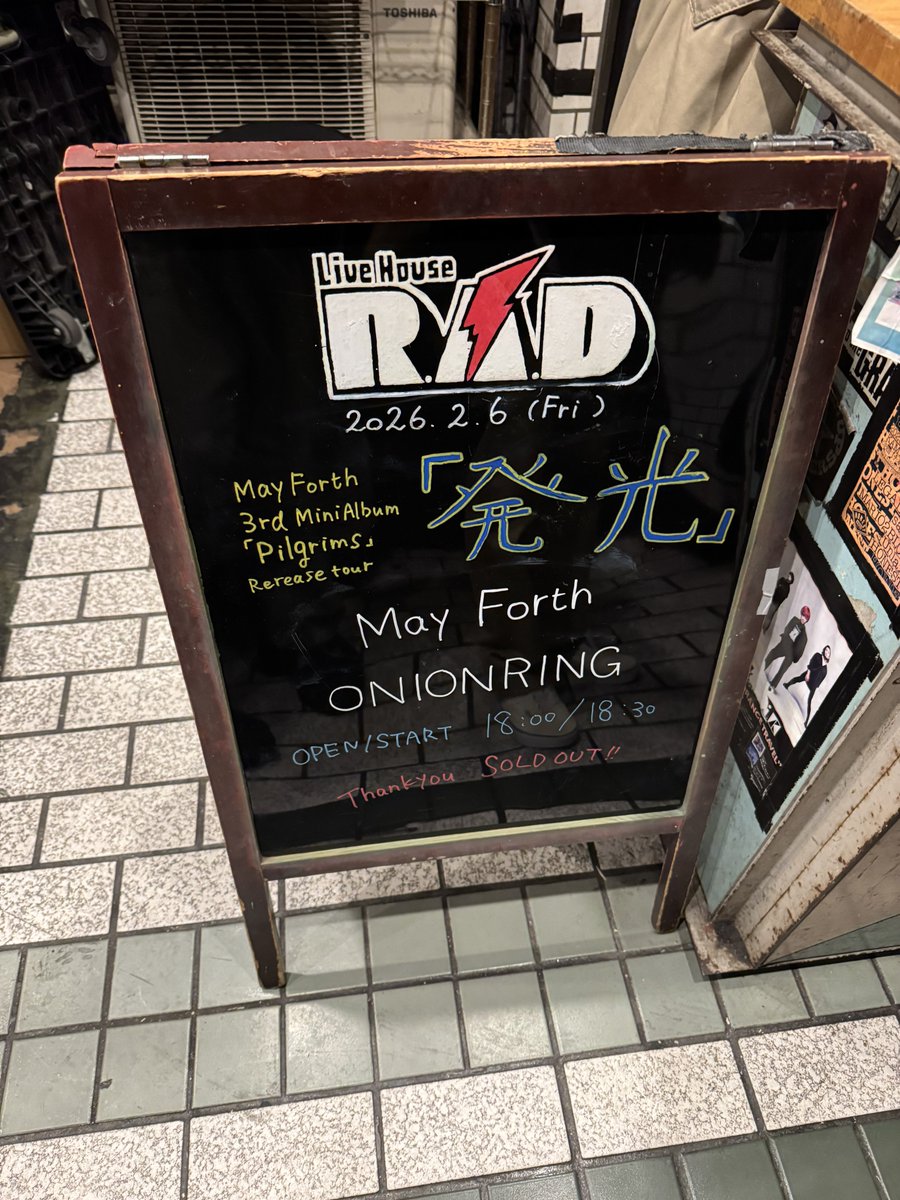 TOSHIBA
Live House
R.A.D
2026.2.6 (Fri)
May Forth
3rd Mini Album
「Pilgrims」
Rerease tour
「発光」
May Forth
ONIONRING
OPEN/START 18:00/18:30
Thankyou SOLD OUT!!